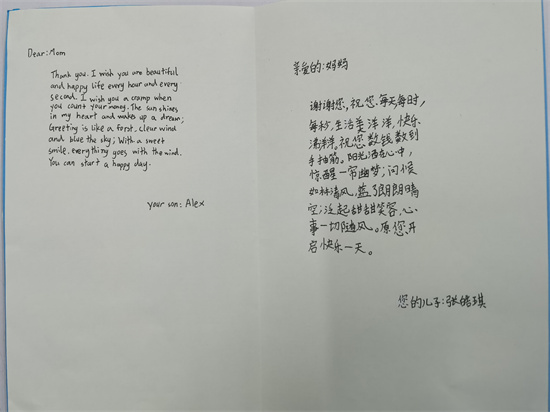 Dear: Mom
Thank you. I wish you are beautiful
and happy life every hour and every
second. I wish you a cramp when
you count your money. The sun shines
in my heart and wakes up a dream;
Greeting is like a forst, clear wind
and blue the sky; With a sweet
smile, everything goes with the wind.
You can start a happy day.
your son: Alex
亲爱的:妈妈
谢谢您,祝您.每天每时,
每秒,生活美洋洋,快乐
满洋洋。祝您数钱数到
手抽筋。阳光洒在心中,
惊醒一帘幽梦;问候
如林清风,蓝了朗朗晴
空;泛起甜甜笑容,心
事一切随风。原您开
启快乐一天。
您的儿子:张皓琪